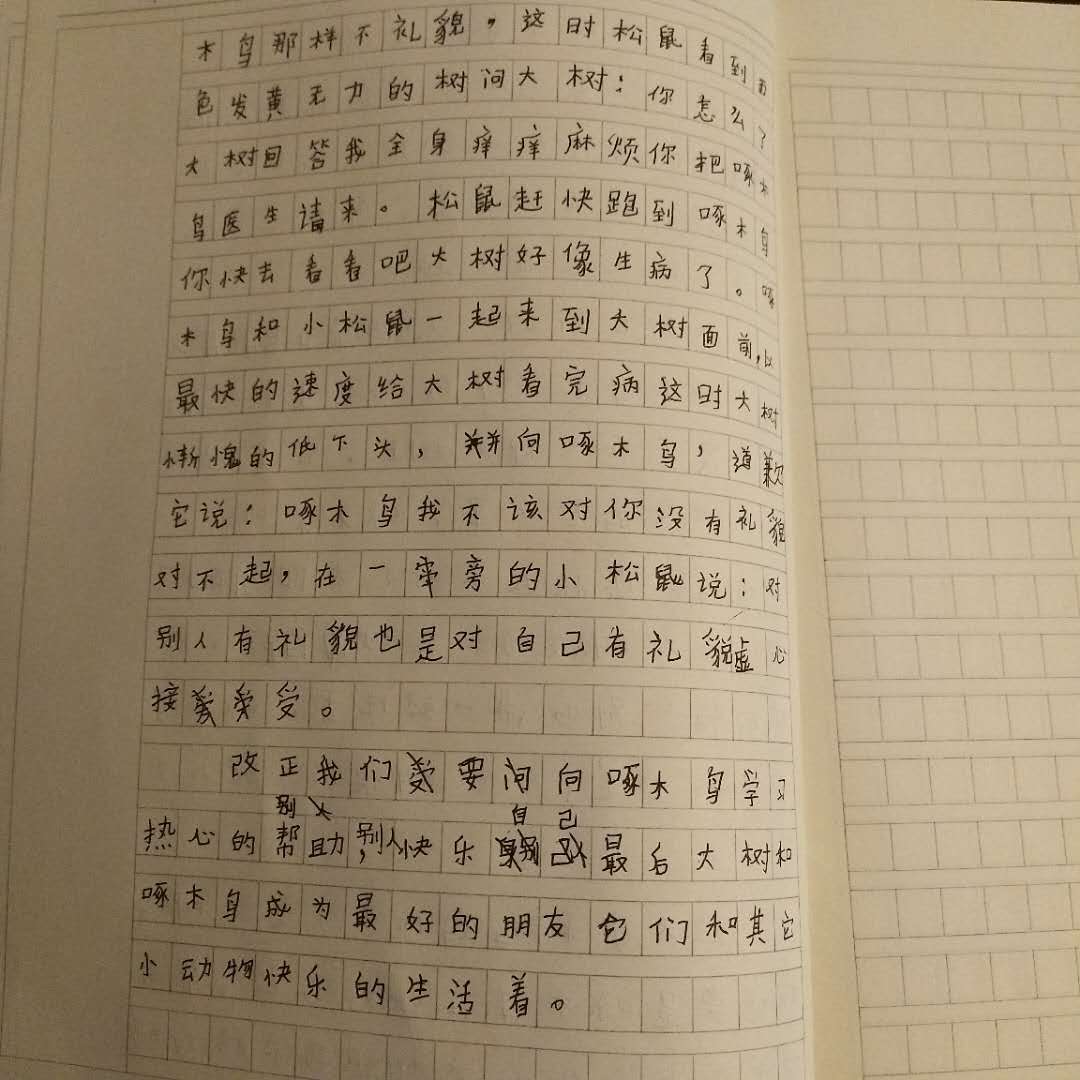 木鸟那样不礼貌，这时松鼠看到面
色发黄无力的树问大树：你怎么？
大树回答我全身痒痒麻烦你把啄木
鸟医生请来。松鼠赶快跑到啄木鸟
你快去看看吧大树好像生病了。啄
木鸟和小松鼠一起来到大树面前，以
最快的速度给大树看完病这时大树
惭愧的低下头，并向啄木鸟，道歉
它说：啄木鸟我不该对你没有礼貌
对不起，在一旁的小松鼠说：对
别人有礼貌也是对自己有礼貌虚心
接受。
改正我们要向啄木鸟学习
热心的帮助，别人快乐自己最后大树和
啄木鸟成为最好的朋友它们和其它
小动物快乐的生活着。